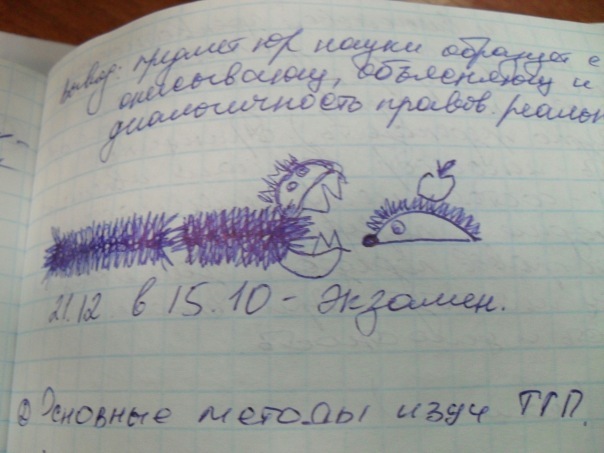 Вывод: предмет юр науки образует с
описывающ, объясняющ и
диалогичность правов. реальн
21.12. в 15.10 - Экзамен.
② Основные методы изуч ТГП.